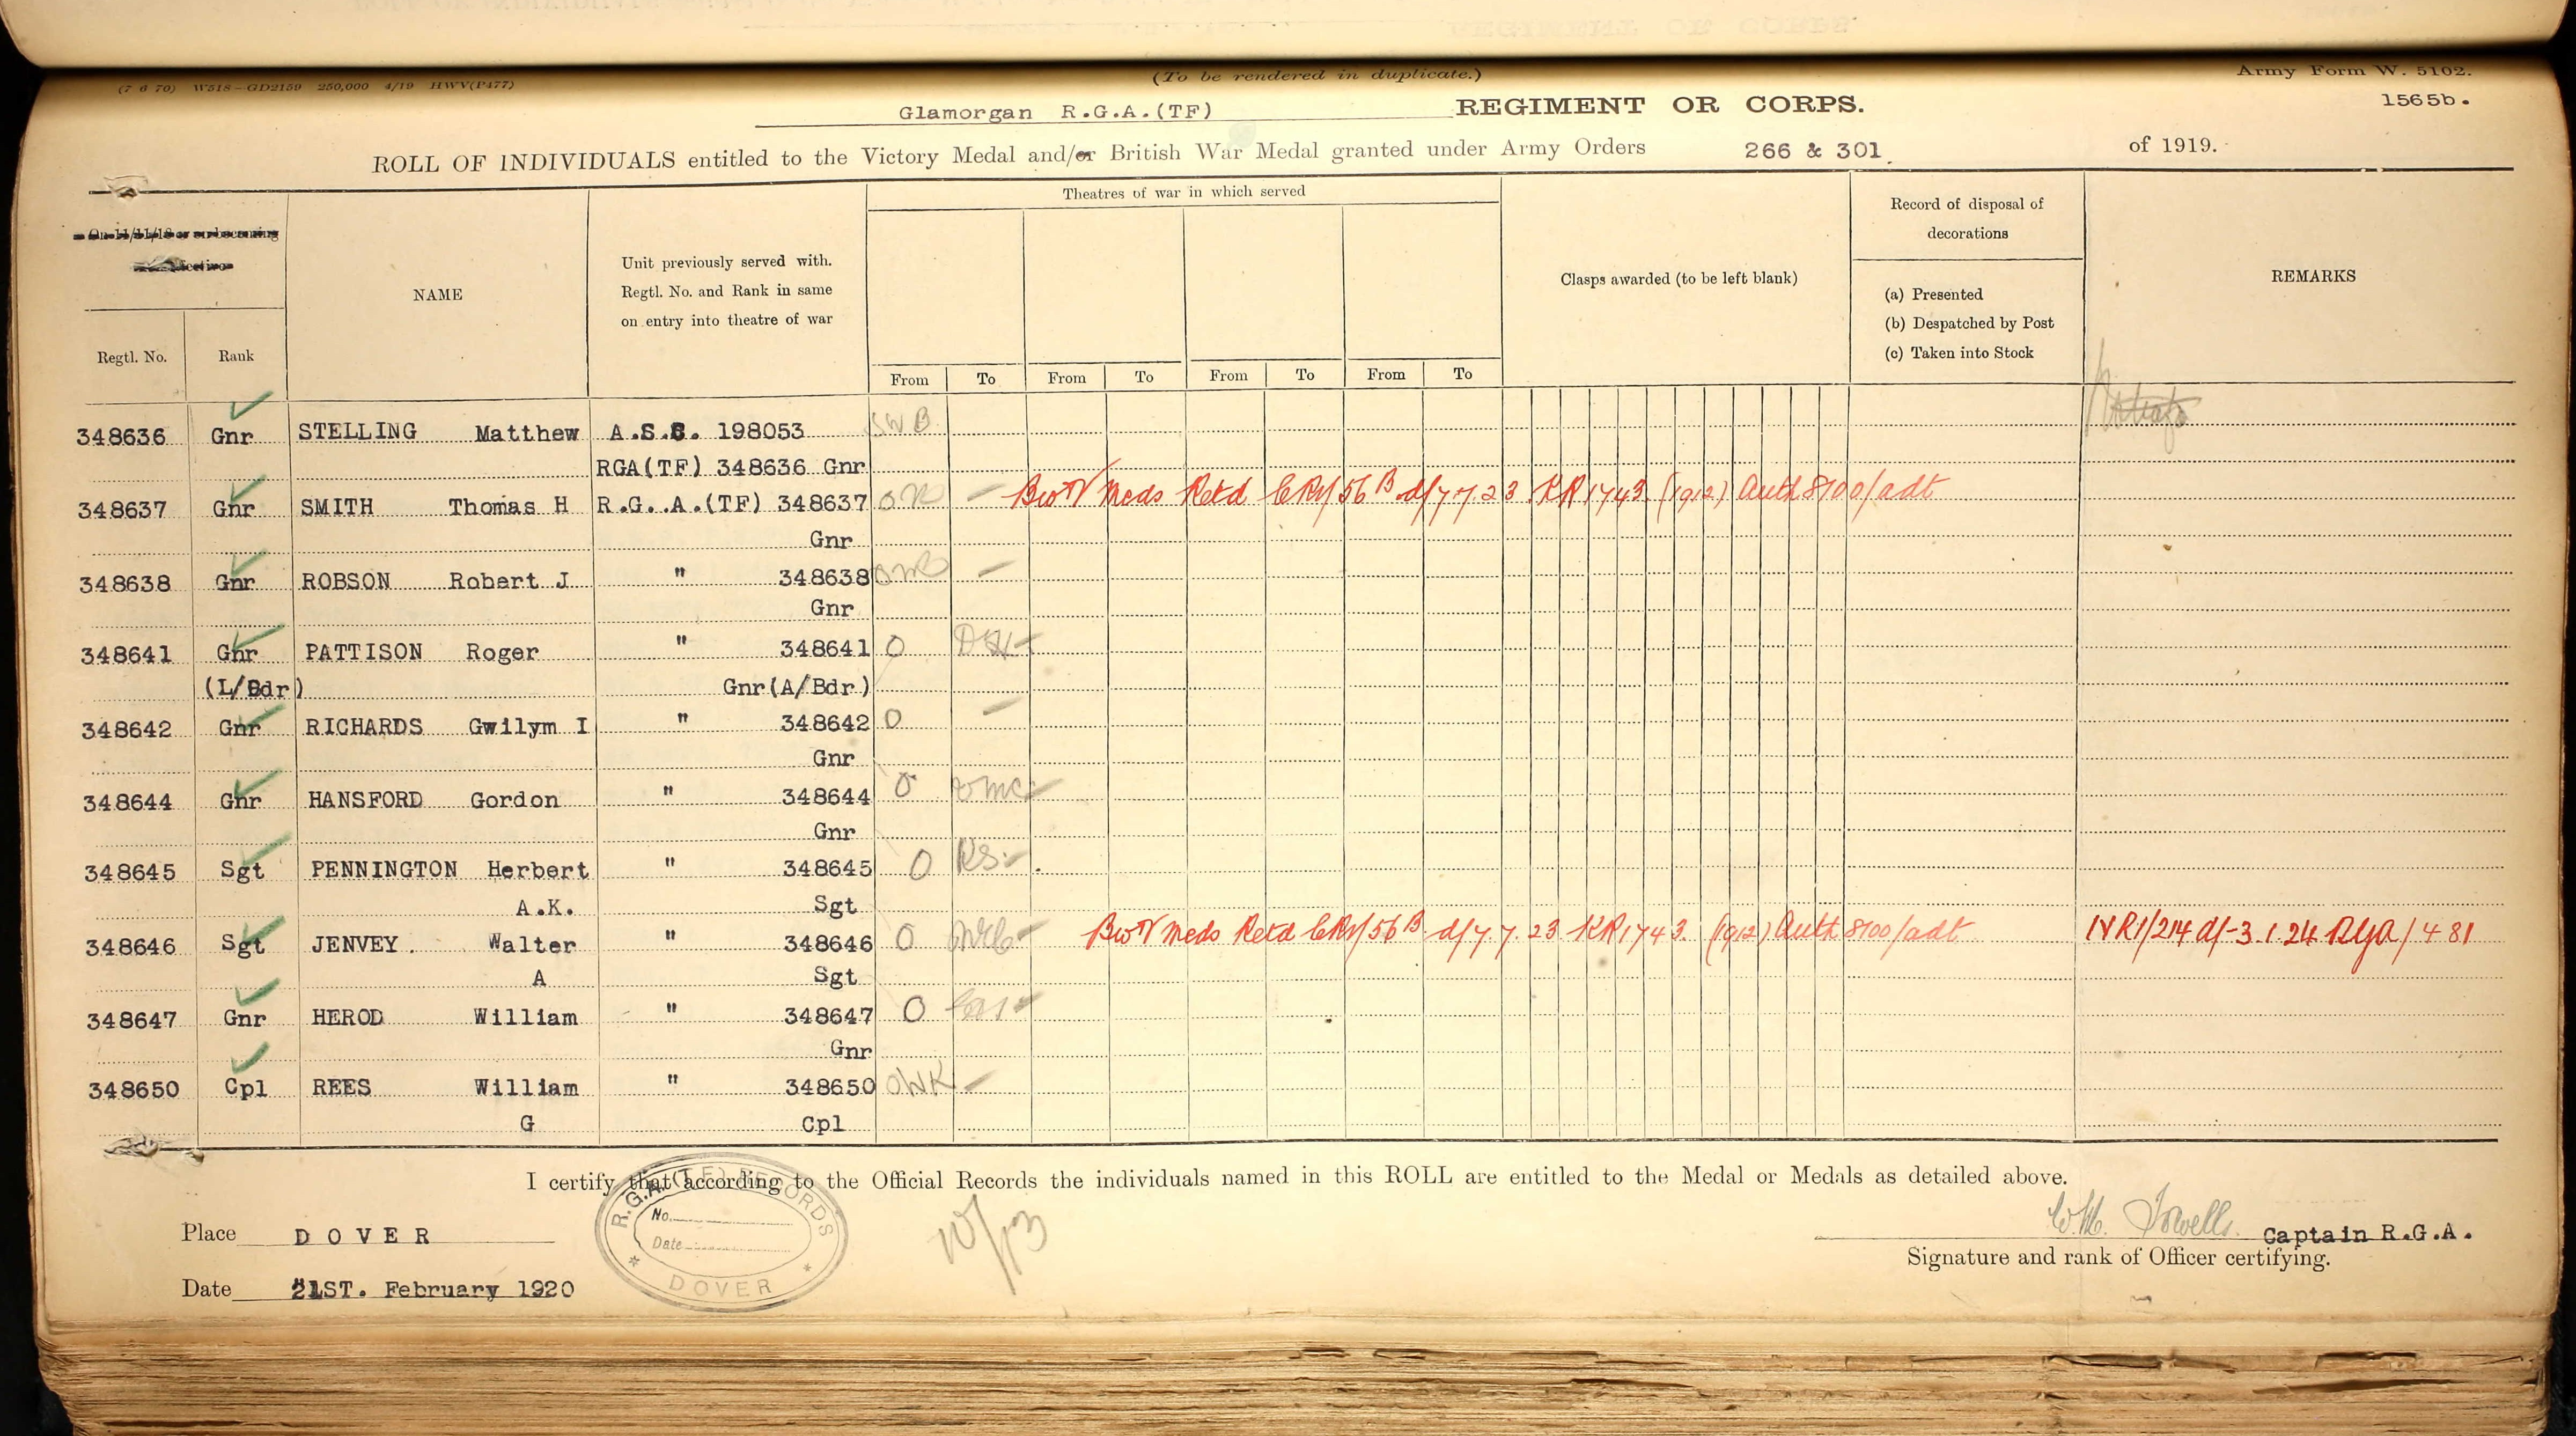 (To be rendered in duplicate.)
Army Form W. 5102.
(7 6 70) W518—GD2159 250,000 4/19 HWV(P477)
Glamorgan R.G.A.(TF) REGIMENT OR CORPS.
1565b.
ROLL OF INDIVIDUALS entitled to the Victory Medal and/or British War Medal granted under Army Orders 266 & 301. of 1919.
Theatres of war in which served
Record of disposal of
decorations
Unit previously served with.
Regtl. No. and Rank in same
on entry into theatre of war
NAME
Clasps awarded (to be left blank)
REMARKS
(a) Presented
(b) Despatched by Post
(c) Taken into Stock
Regtl. No. Rank
From To From To From To From To
348636 Gnr STELLING Matthew A.S.C. 198053 SWB
RGA(TF) 348636 Gnr
348637 Gnr SMITH Thomas H R.G.A.(TF) 348637 BW V Meds Retd CRV/56 B d/7.7.23 KR 1743 (1912) Auth 8100/adt
Gnr
348638 Gnr ROBSON Robert J " 348638
Gnr
348641 Gnr PATTISON Roger " 348641 O
(L/Bdr) Gnr(A/Bdr)
348642 Gnr RICHARDS Gwilym I " 348642 O
Gnr
348644 Gnr HANSFORD Gordon " 348644 O
Gnr
348645 Sgt PENNINGTON Herbert " 348645 O
A.K. Sgt
348646 Sgt JENVEY. Walter " 348646 O BW V Meds Retd CRV/56 B d/7.7.23 KR 1743. (1912) Auth 8100/adt IVR1/214 d/-3.1.24 RGA/481
A Sgt
348647 Gnr HEROD William " 348647 O
Gnr
348650 Cpl REES William " 348650 OWK
G Cpl
I certify that according to the Official Records the individuals named in this ROLL are entitled to the Medal or Medals as detailed above.
R.G.A.(T.F.) RECORDS
No.
Date
DOVER
Place DOVER
Captain R.G.A.
Signature and rank of Officer certifying.
Date 21ST. February 1920